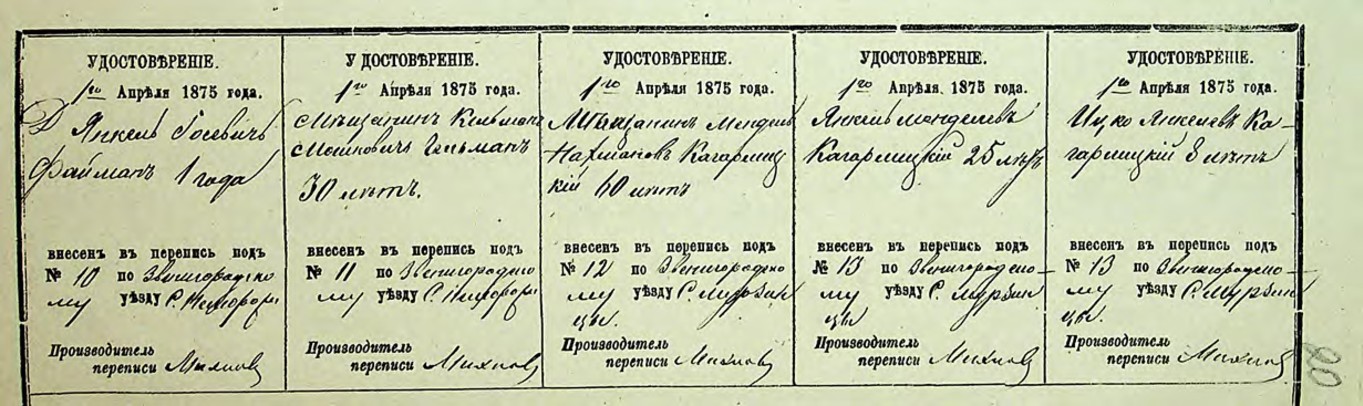 УДОСТОВѢРЕНІЕ.
1го Апрѣля 1875 года.
Янкель Госевичъ
Файманъ 1 года
внесенъ въ перепись подъ
№ 10 по Звенигородско
му уѣзду С.
Производитель
переписи
УДОСТОВѢРЕНІЕ.
1го Апрѣля 1875 года.
Мѣщанинъ Кельманъ
Мошковичъ Гельманъ
30 лѣтъ.
внесенъ въ перепись подъ
№ 11 по Звенигородско
му уѣзду С.
Производитель
переписи
УДОСТОВѢРЕНІЕ.
1го Апрѣля 1875 года.
Мѣщанинъ Мендель
Нахмановъ Кагарлиц
кій 60 лѣтъ
внесенъ въ перепись подъ
№ 12 по Звенигородско
му уѣзду С. Мурзин
цы.
Производитель
переписи
УДОСТОВѢРЕНІЕ.
1го Апрѣля 1875 года.
Янкель Менделевъ
Кагарлицкій 25 лѣтъ
внесенъ въ перепись подъ
№ 13 по Звенигородско-
му уѣзду С. Мурзин
цы
Производитель
переписи
УДОСТОВѢРЕНІЕ.
1го Апрѣля 1875 года.
Ицко Янкелевъ Ка-
гарлицкій 8 лѣтъ
внесенъ въ перепись подъ
№ 13 по Звенигородско-
му уѣзду С. Мурзин
цы.
Производитель
переписи